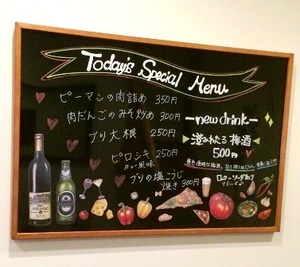 Today's Special Menu
ピーマンの肉詰め 350円
肉だんごのみそ炒め 300円
ブリ大根 250円
ピロシキ 250円
カレー風味
ブリの塩こうじ
焼き 300円
new drink
澄みわたる梅酒
500円
ロック・ソーダ割り